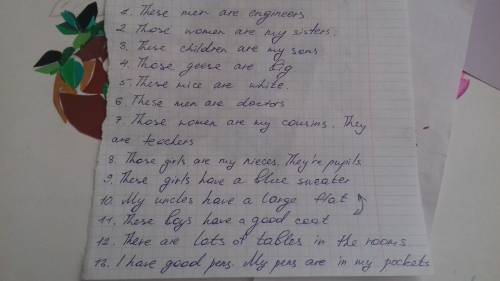 1. These men are engineers
2. Those women are my sisters.
3. These children are my sons
4. Those geese are big
5. These mice are white.
6. These men are doctors
7. Those women are my cousins. They
are teachers
8. Those girls are my nieces. They're pupils
9. These girls have a blue sweater
10. My uncles have a large flat
11. These boys have a good coat
12. There are lots of tables in the rooms
13. I have good pens. My pens are in my pockets